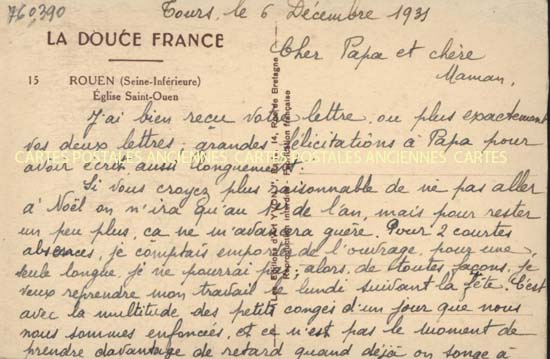 760,390
Tours, le 6 Décembre 1931
LA DOUCE FRANCE
Cher Papa et chère
Maman,
15 ROUEN (Seine-Inférieure)
Église Saint-Ouen
J'ai bien reçu votre lettre, ou plus exactement
vos deux lettres, grandes félicitations à Papa pour
CARTES POSTALES ANCIENNES CARTES POSTALES ANCIENNES CARTES
avoir écrit aussi longuement.
Si vous croyez plus raisonnable de ne pas aller
à Noël on n'ira qu'au de l'an, mais pour rester
un peu plus, ça ne m'avancera guère. Pour 2 courtes
absences, je comptais emporter de l'ouvrage, pour une
seule longue, je ne pourrai pas; alors, de toutes façons, je
veux reprendre mon travail le lundi suivant la fête. C'est
avec la multitude des petits congés d'un jour que nous
nous sommes enfoncés, et ce n'est pas le moment de
prendre davantage de retard quand déjà on songe à
Les Éditions d'Art YVON, 14, Rue de Bretagne
Reproduction interdite Fabrication française